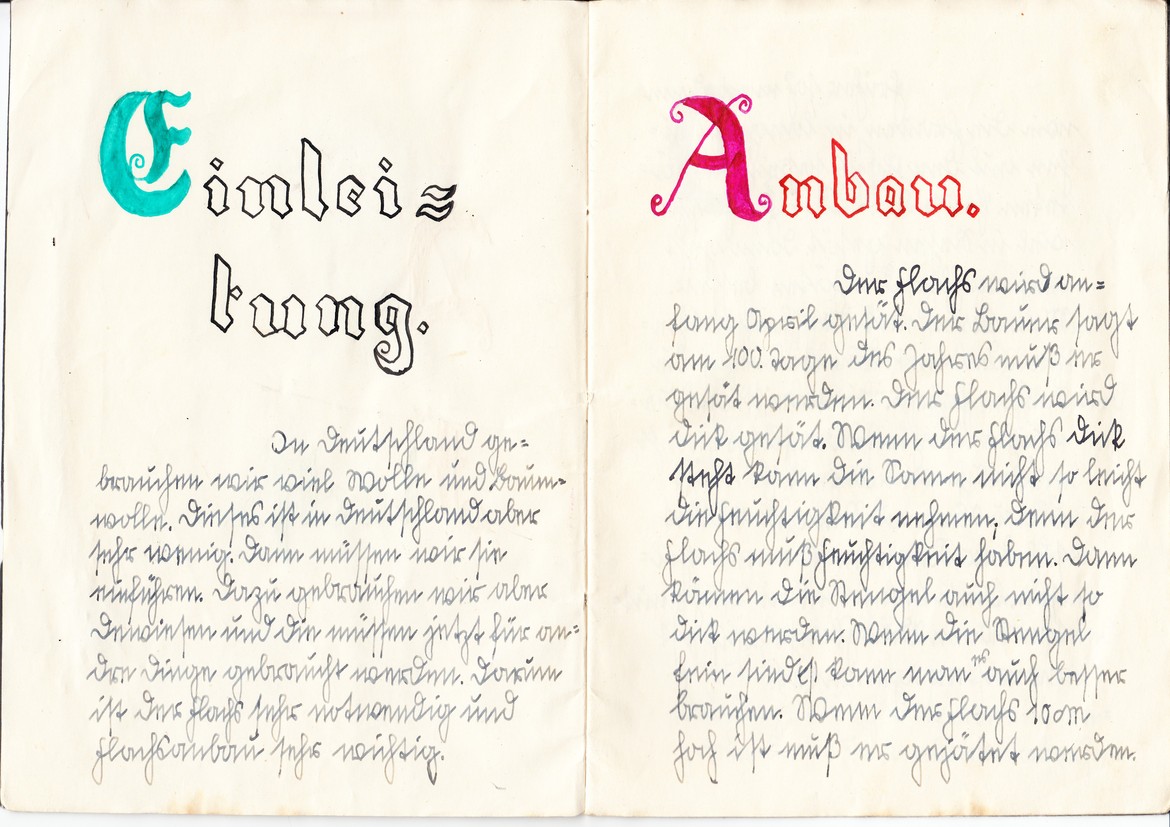 Einlei=
tung.
In Deutschland ge=
brauchen wir viel Wolle und Baum=
wolle. Dieses ist in Deutschland aber
sehr wenig. Dann müssen wir sie
einführen. Dazu gebrauchen wir aber
Dewiesen und die müssen jetzt für an=
dre Dinge gebraucht werden. Darum
ist der Flachs sehr notwendig und
Flachsanbau sehr wichtig.
Anbau.
Der Flachs wird an=
fang April gesät. Der Bauer sagt
am 100. Tage des Jahres muß er
gesät werden. Der Flachs wird
dick gesät. Wenn der Flachs dick
steht kann die Sonne nicht so leicht
die Feuchtigkeit nehmen, denn der
Flachs muß Feuchtigkeit haben. Dann
können die Stengel auch nicht so
dick werden. Wenn die Stengel
fein sind kann man ihn auch besser
brauchen. Wenn der Flachs 10 cm
hoch ist muß er gejätet werden.